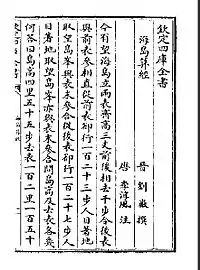 欽定四庫全書
海島算經
晉 劉徽 撰
唐 李淳風 注
今有望海島立兩表齊高三丈前後相去千步令後表
與前表參相直從前表卻行一百二十三步人目著地
取望島峯與表末參合從後表卻行一百二十七步人
目著地取望島峯亦與表末參合問島高及去表各幾
何答曰島高四里五十五步去表一百二里一百五十